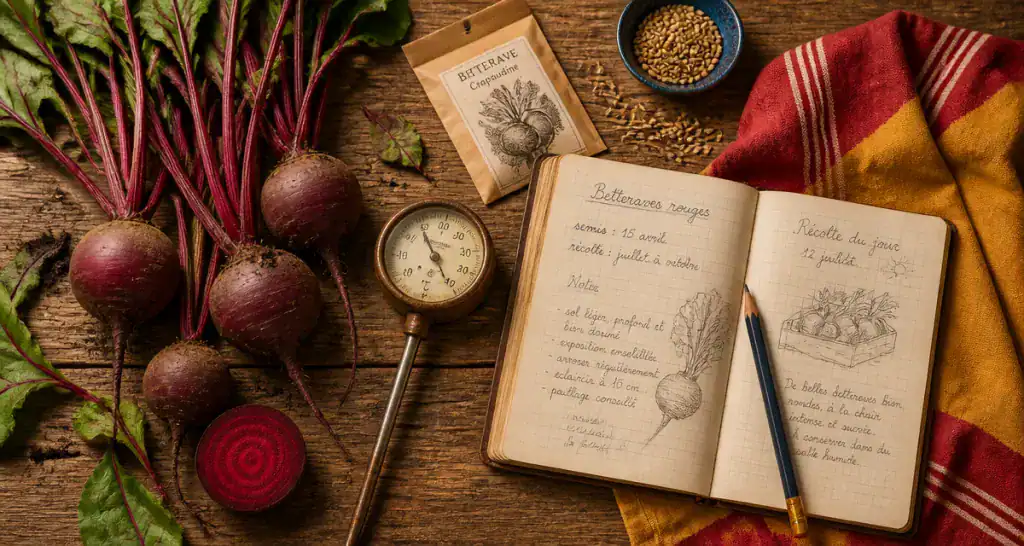 BETTERAVE
Crapaudine
Betteraves rouges
semis : 15 avril
récolte : juillet à octobre
Notes
- sol léger, profond et
bien drainé
- exposition ensoleillée
- arroser régulièrement
- éclaircir à 10 cm
- paillage conseillé
Récolte du jour
12 juillet
De belles betteraves bien
rondes, à la chair
intense et sucrée.
À conserver dans du
sable humide.
°C